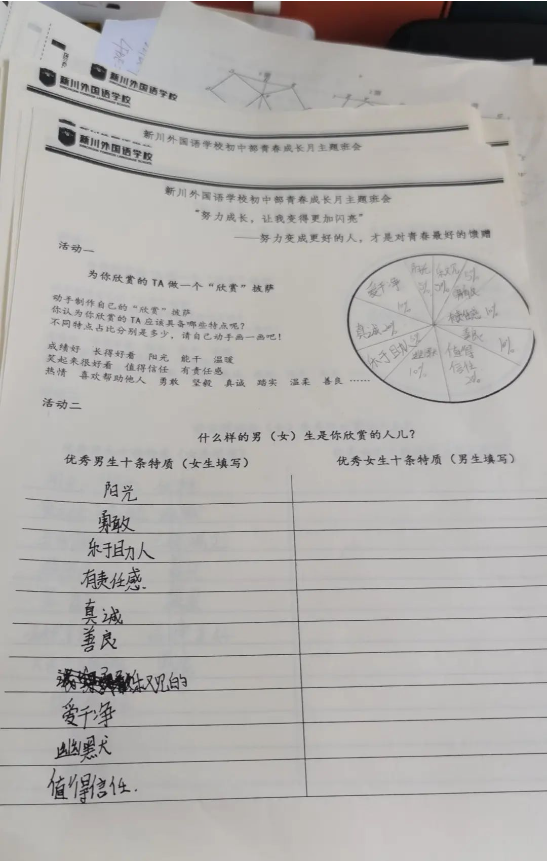 新川外国语学校
新川外国语学校
新川外国语学校
新川外国语学校初中部青春成长月主题班会
新川外国语学校初中部青春成长月主题班会
“努力成长，让我变得更加闪亮”
——努力变成更好的人，才是对青春最好的馈赠
活动一
为你欣赏的 TA 做一个“欣赏”披萨
动手制作自己的“欣赏”披萨
你认为你欣赏的 TA 应该具备哪些特点呢？
不同特点占比分别是多少，请自己动手画一画吧！
成绩好 长得好看 阳光 能干 温暖
笑起来很好看 值得信任 有责任感
热情 喜欢帮助他人 勇敢 坚毅 真诚 踏实 温柔 善良 ……
爱干净
善良
值得
信任
10%
活动二
什么样的男（女）生是你欣赏的人儿？
优秀男生十条特质（女生填写）
优秀女生十条特质（男生填写）
阳光
勇敢
乐于助人
有责任感
真诚
善良
乐观的
爱干净
幽默
值得信任.